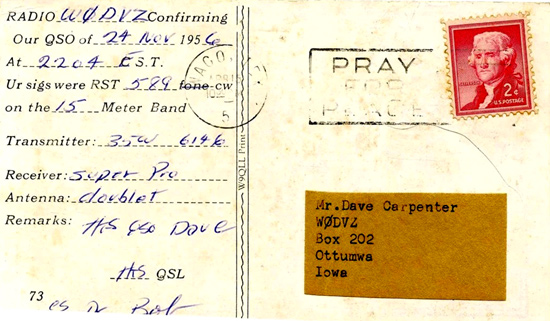 RADIO WØDVZ Confirming
Our QSO of 24 Nov 1956
At 2204 E.S.T.
Ur sigs were RST 589 fone-cw
on the 15 Meter Band
Transmitter: 35W 6146
Receiver: Super Pro
Antenna: doublet
Remarks: QSO Dave
QSL
73 Bob
W9QLL Print
WACO
PRAY
FOR
PEACE
2¢
U.S. POSTAGE
Mr.Dave Carpenter
WØDVZ
Box 202
Ottumwa
Iowa